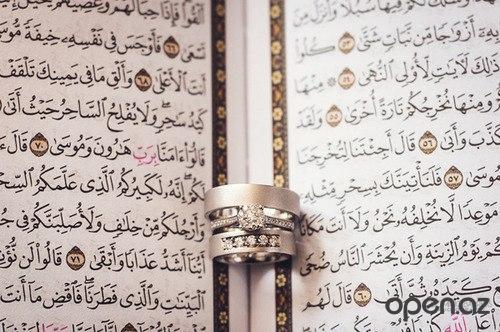 فِيهَا سُبُلًا وَأَنزَلَ مِنَ
أَزْوَٰجًا مِّن نَّبَاتٍ شَتَّىٰ ٥٣ كُلُوا۟
ذَٰلِكَ لَءَايَٰتٍ لِّأُو۟لِى ٱلنُّهَىٰ ٥٤ ۞ مِنْهَا
وَمِنْهَا نُخْرِجُكُمْ تَارَةً أُخْرَىٰ ٥٥ وَلَقَدْ
وَأَبَىٰ ٥٦ قَالَ أَجِئْتَنَا لِتُخْرِجَنَا
٥٧ فَلَنَأْتِيَنَّكَ بِسِحْرٍ مِّثْلِهِۦ
مَوْعِدًا لَّا نُخْلِفُهُۥ نَحْنُ وَلَآ أَنتَ مَكَانًا
يَوْمُ ٱلزِّينَةِ وَأَن يُحْشَرَ ٱلنَّاسُ ضُحًى
كَيْدَهُۥ ثُمَّ أَتَىٰ ٦٠ قَالَ لَهُم
أَلْقُوا۟ فَإِذَا حِبَالُهُمْ وَعِصِيُّهُمْ
تَسْعَىٰ ٦٦ فَأَوْجَسَ فِى نَفْسِهِۦ خِيفَةً مُّوسَىٰ
أَنتَ ٱلْأَعْلَىٰ ٦٨ وَأَلْقِ مَا فِى يَمِينِكَ تَلْقَفْ
كَيْدُ سَٰحِرٍ وَلَا يُفْلِحُ ٱلسَّاحِرُ حَيْثُ أَتَىٰ
قَالُوٓا۟ ءَامَنَّا بِرَبِّ هَٰرُونَ وَمُوسَىٰ ٧٠ قَالَ
لَكُمْ إِنَّهُۥ لَكَبِيرُكُمُ ٱلَّذِى عَلَّمَكُمُ ٱلسِّحْرَ
وَأَرْجُلَكُم مِّنْ خِلَٰفٍ وَلَأُصَلِّبَنَّكُمْ فِى
أَيُّنَآ أَشَدُّ عَذَابًا وَأَبْقَىٰ ٧١ قَالُوا۟ لَن
ٱلْبَيِّنَٰتِ وَٱلَّذِى فَطَرَنَا فَٱقْضِ مَآ أَنتَ
openaz